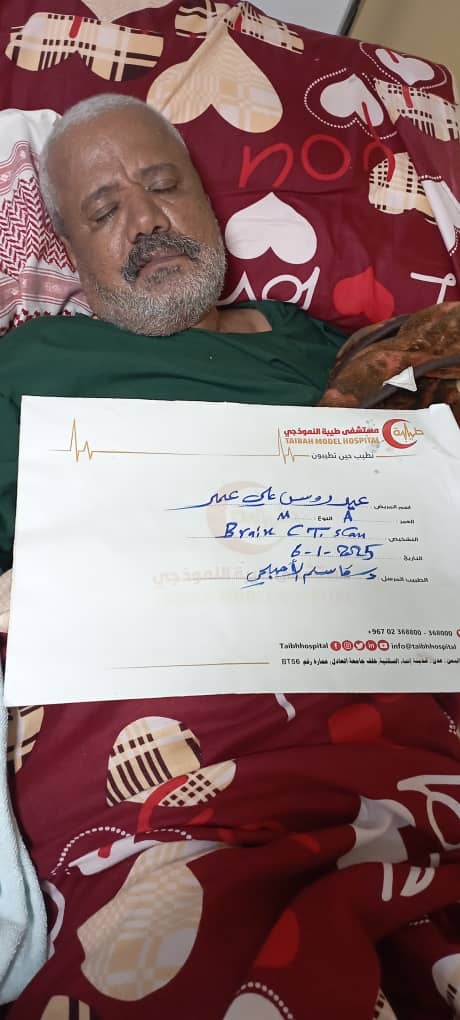 YOU
LOVE
مستشفى طيبة النموذجي
TAIBAH MODEL HOSPITAL
طيبة
نطيب حين تطيبون
اسم المريض: عيدروس علي عمر
العمر: A النوع: M
التشخيص: Brain C T. scan
التاريخ: 6-1-2025
الطبيب المرسل: د. قاسم الأصبحي
مستشفى طيبة النموذجي
+967 02 368800 - 368000
Taibhhospital info@taibhhospital
اليمن، عدن، مدينة إنماء السكنية خلف جامعة العادل، عمارة رقم BT56